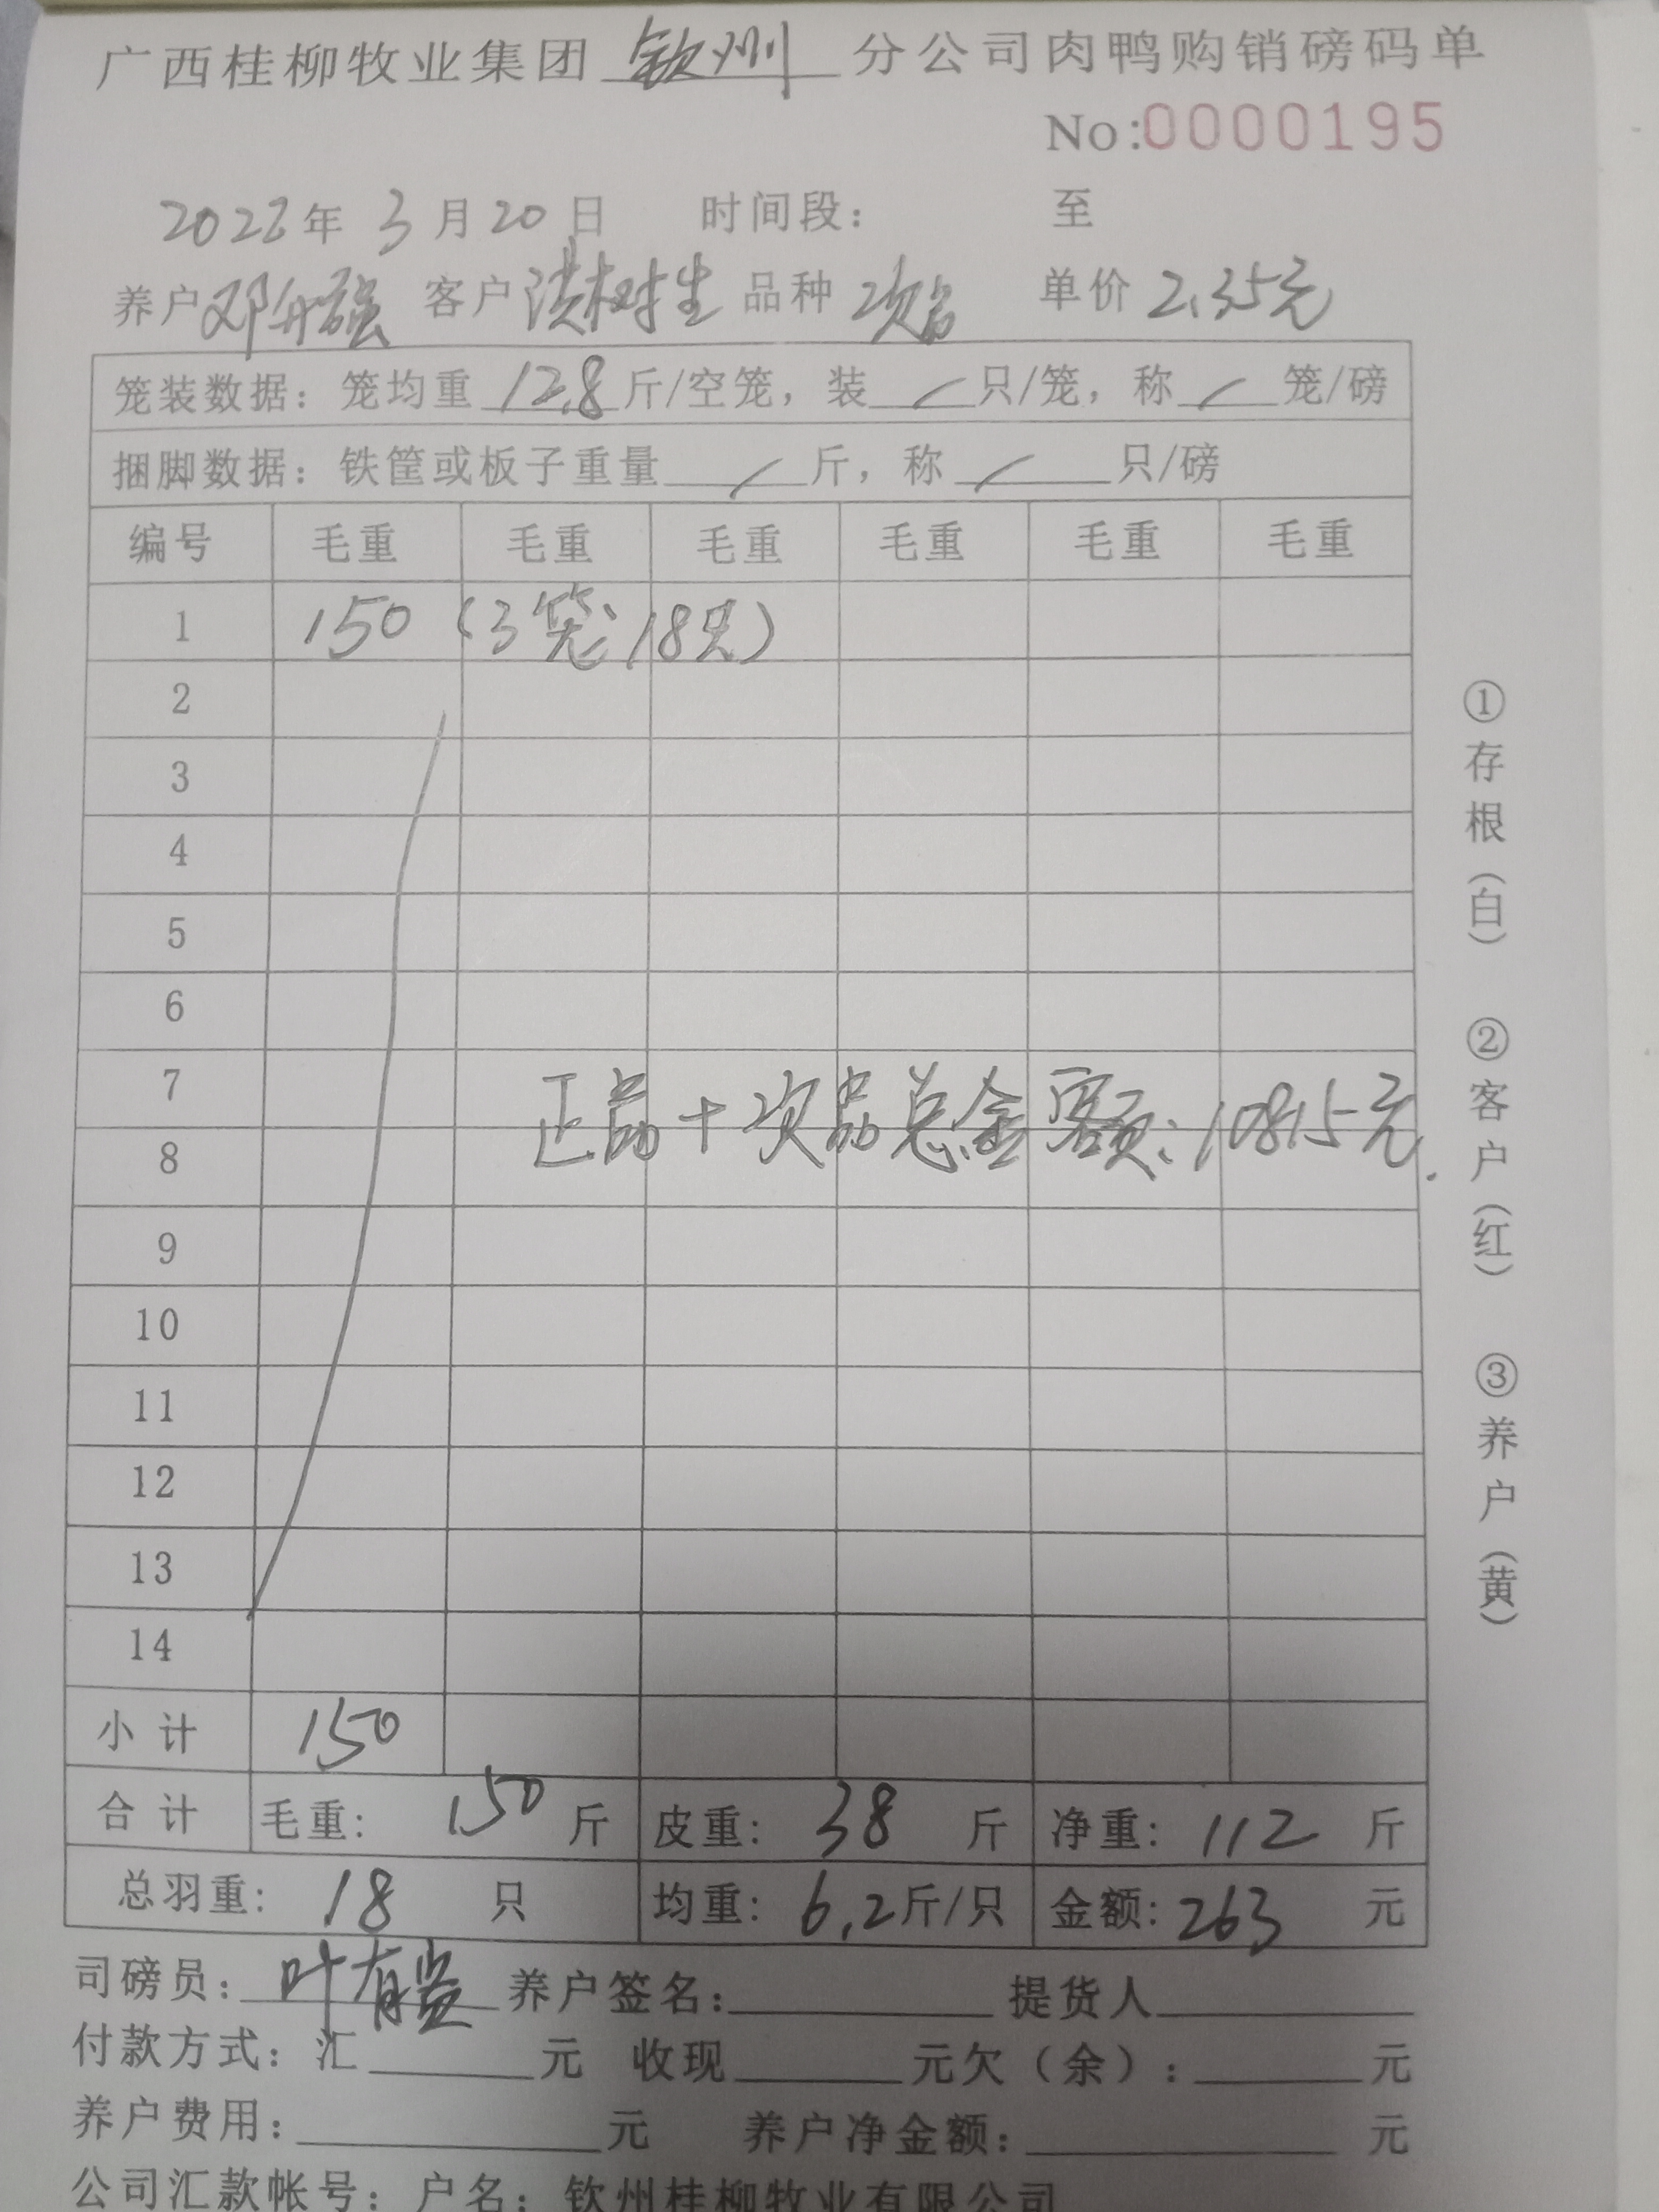 广西桂柳牧业集团 钦州 分公司肉鸭购销磅码单
No:0000195
2023年 3月20日 时间段: 至
养户 邓 强 客户 洪树生 品种 次品 单价 2.35元
笼装数据:笼均重 12.8 斤/空笼,装 / 只/笼,称 / 笼/磅
捆脚数据:铁筐或板子重量 / 斤,称 / 只/磅
编号 毛重 毛重 毛重 毛重 毛重 毛重
1 150 (3笼; 18只)
2
3
4
5
6
7
正品+次品总金额:10815元.
8
9
10
11
12
13
14
小计 150
合计 毛重: 150 斤 皮重: 38 斤 净重: 112 斤
总羽重: 18 只 均重: 6.2 斤/只 金额: 263 元
司磅员: 叶有益 养户签名: 提货人
付款方式:汇 元 收现 元欠(余): 元
养户费用: 元 养户净金额: 元
公司汇款帐号:户名:钦州桂柳牧业有限公司
①存根(白) ②客户(红) ③养户(黄)